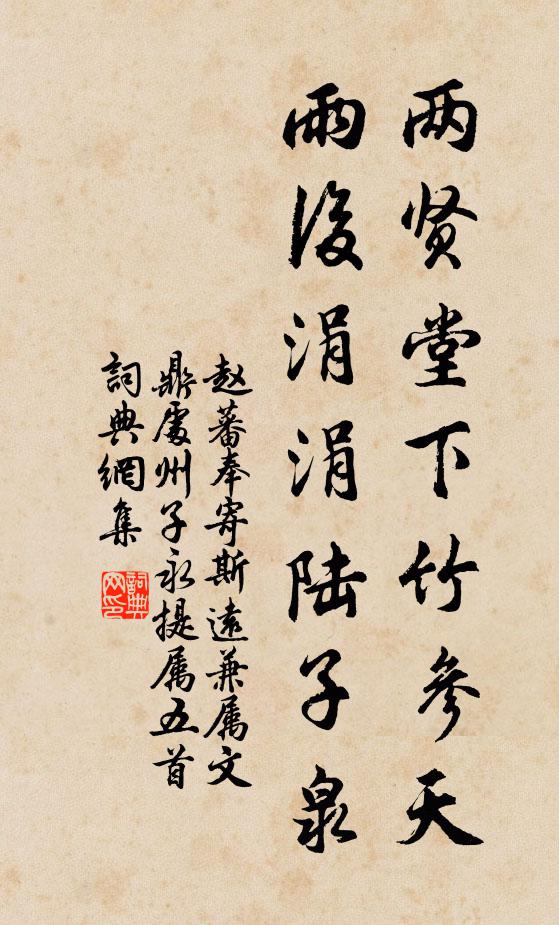 两贤堂下竹参天
雨後涓涓陆子泉
赵蕃奉寄斯遠兼属文
鼎處州子永提属五首
詞典網集
詞典
网印